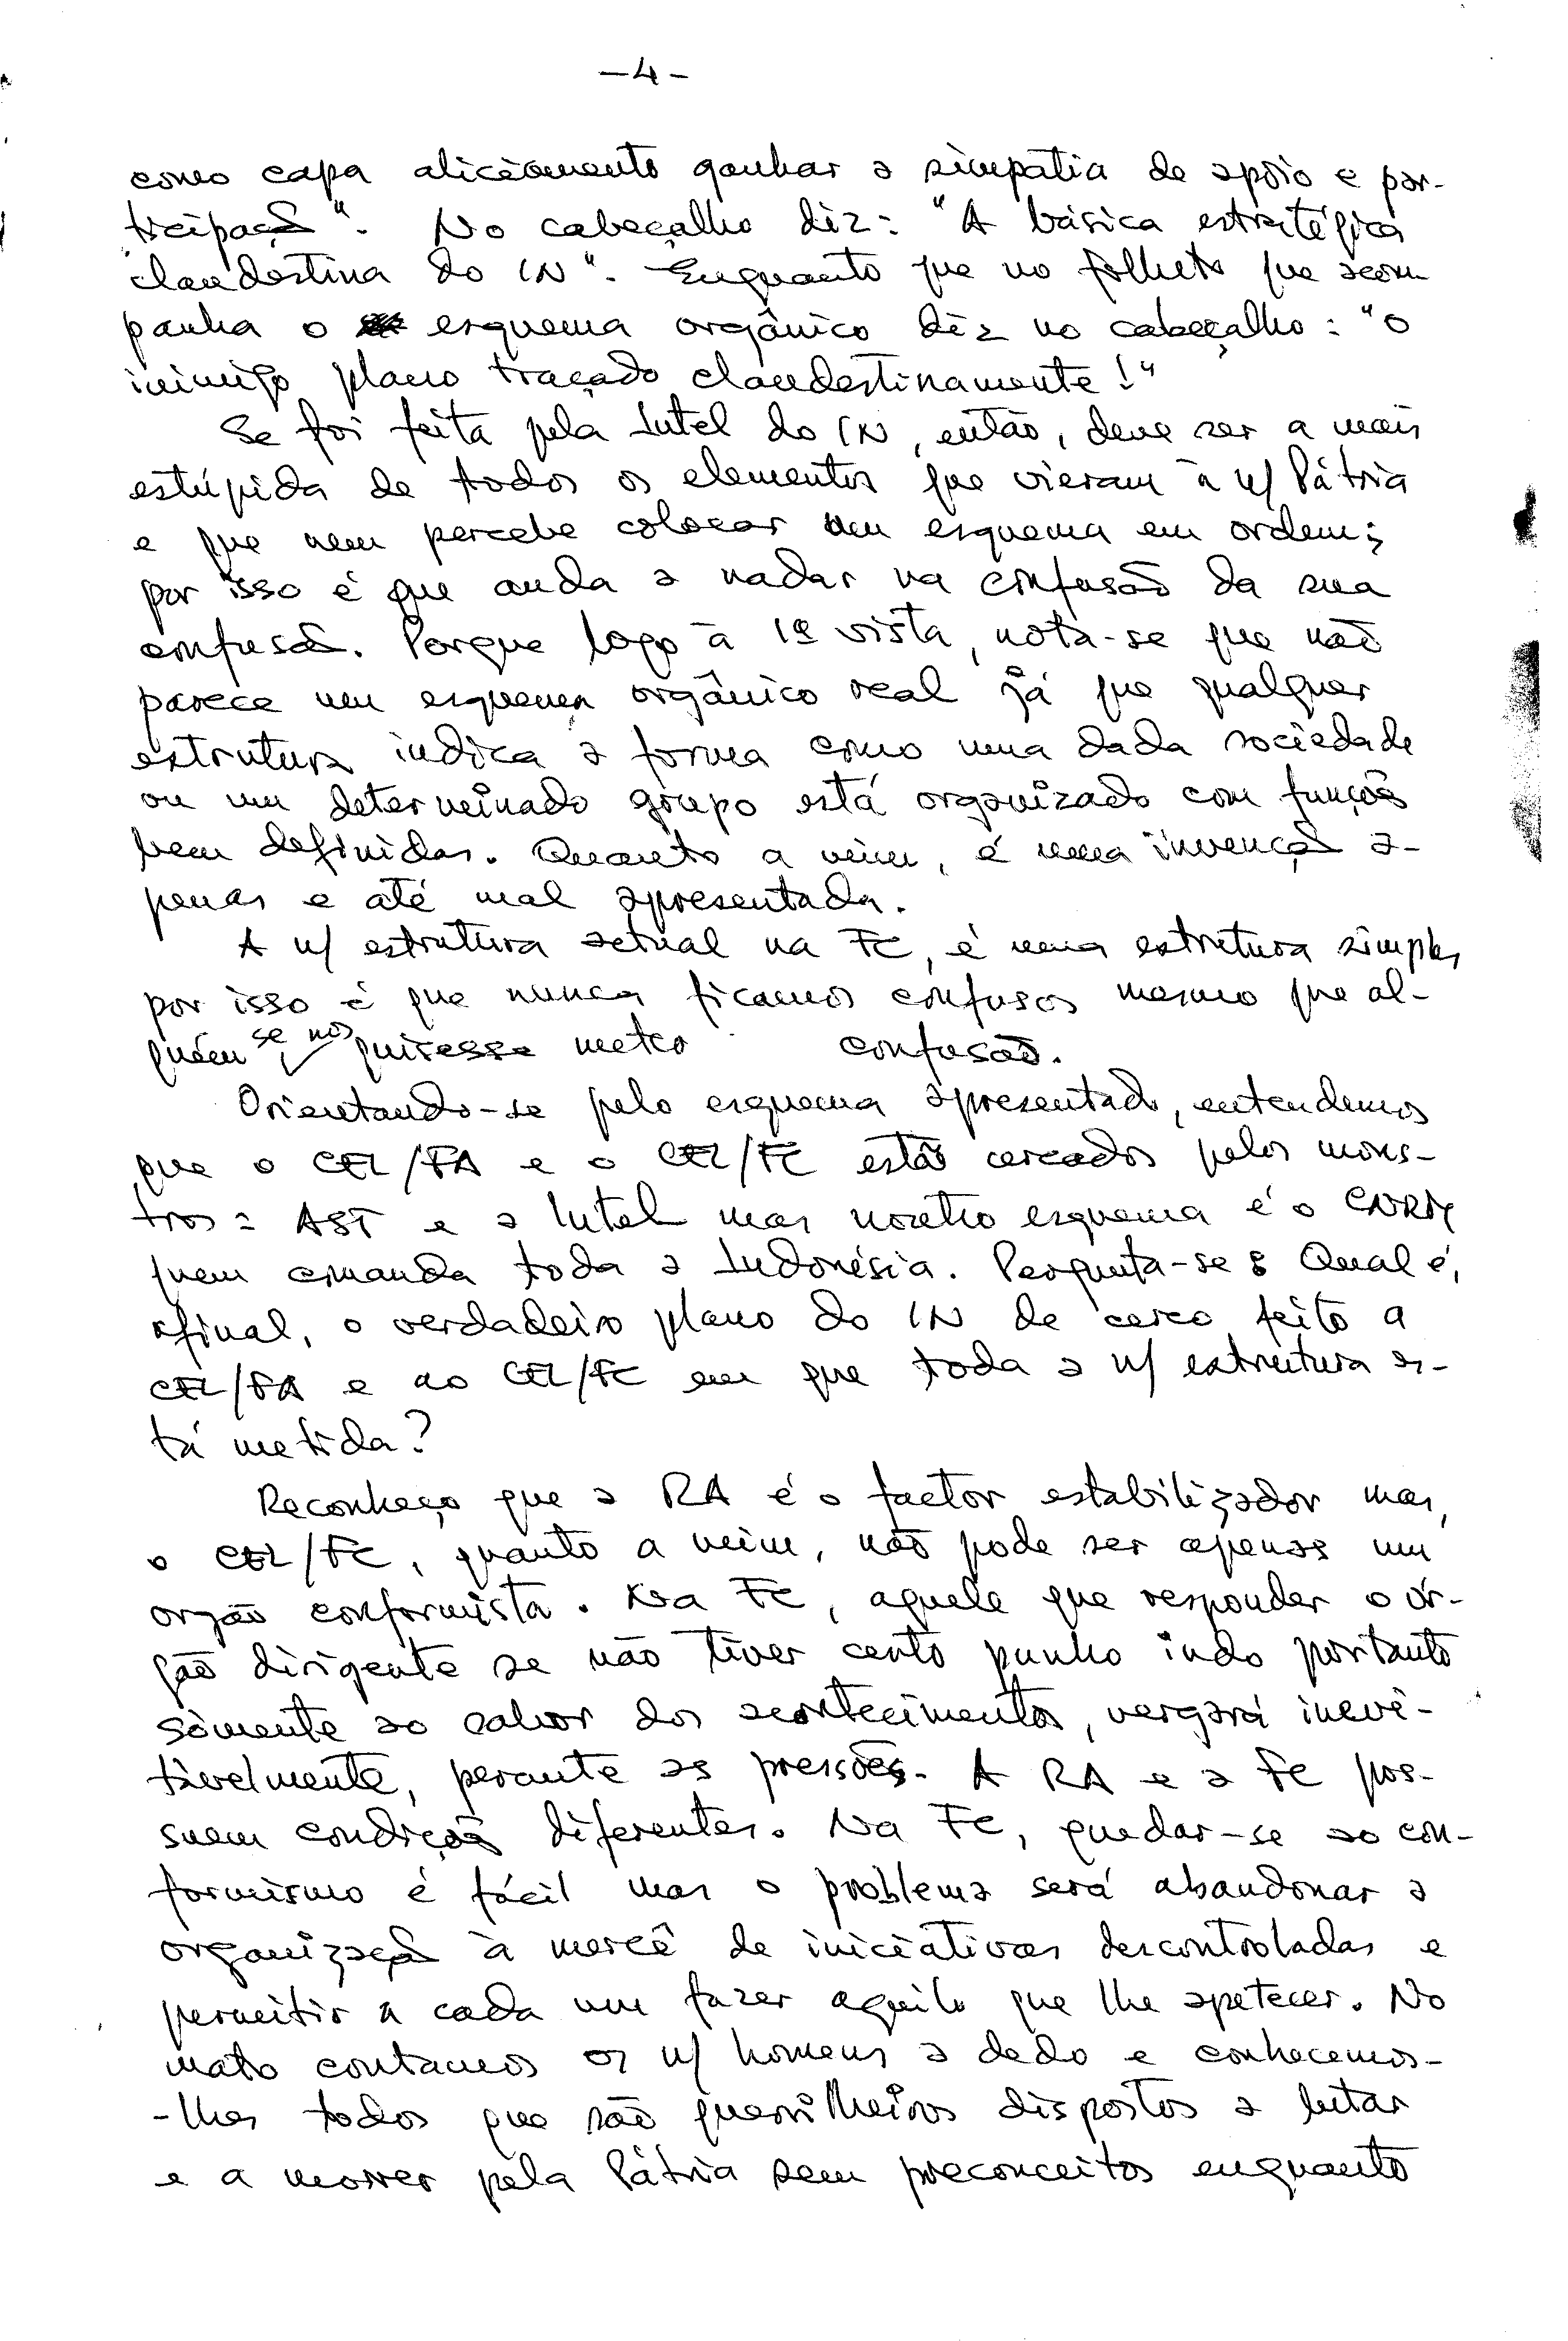 -4-
como capa aliciamento ganhar a simpatia de apoio e par-
ticipação". No cabeçalho diz: "A básica estratégica
clandestina do IN". Enquanto que no folheto que acom
panha o esquema orgânico diz no cabeçalho: "o
inimigo plano traçado clandestinamente!"
Se foi feita pela Intel do IN, então, deve ser a mais
estúpida de todos os elementos que vieram à n/ Pátria
e que nem percebe colocar um esquema em ordem;
por isso é que anda a nadar na confusão da sua
confusão. Porque logo à 1ª vista, nota-se que não
parece um esquema orgânico real já que qualquer
estrutura indica a forma como uma dada sociedade
ou um determinado grupo está organizado com funções
bem definidas. Quanto a mim, é uma invenção a-
penas e até mal apresentada.
A n/ estrutura actual na FC, é uma estrutura simples,
por isso é que nunca ficamos confusos mesmo que al-
guém se nos quisesse meter confusão.
Orientando-se pelo esquema apresentado, entendemos
que o CEL/FA e o CEL/FC estão cercados pelos mons-
tros: AST e a Intel mas noutro esquema é o CNRM
quem comanda toda a Indonésia. Pergunta-se: Qual é,
afinal, o verdadeiro plano do IN de cerco feito a
CEL/FA e ao CEL/FC em que toda a n/ estrutura es-
tá metida?
Reconheço que a RA é o factor estabilizador mas,
o CEL/FC, quanto a mim, não pode ser apenas um
orgão conformista. Na FC, aquele que responder o ór-
gão dirigente se não tiver certo punho indo portanto
sòmente ao sabor dos acontecimentos, vergará inevi-
tàvelmente, perante as pressões. A RA e a FC pos-
suem condições diferentes. Na FC, quedar-se ao con-
formismo é fácil mas o problema será abandonar a
organização à mercê de iniciativas descontroladas e
permitir a cada um fazer aquilo que lhe apetecer. No
mato contamos os n/ homens a dedo e conhecemos-
-lhes todos que são guerrilheiros dispostos a lutar
e a morrer pela Pátria sem preconceitos enquanto